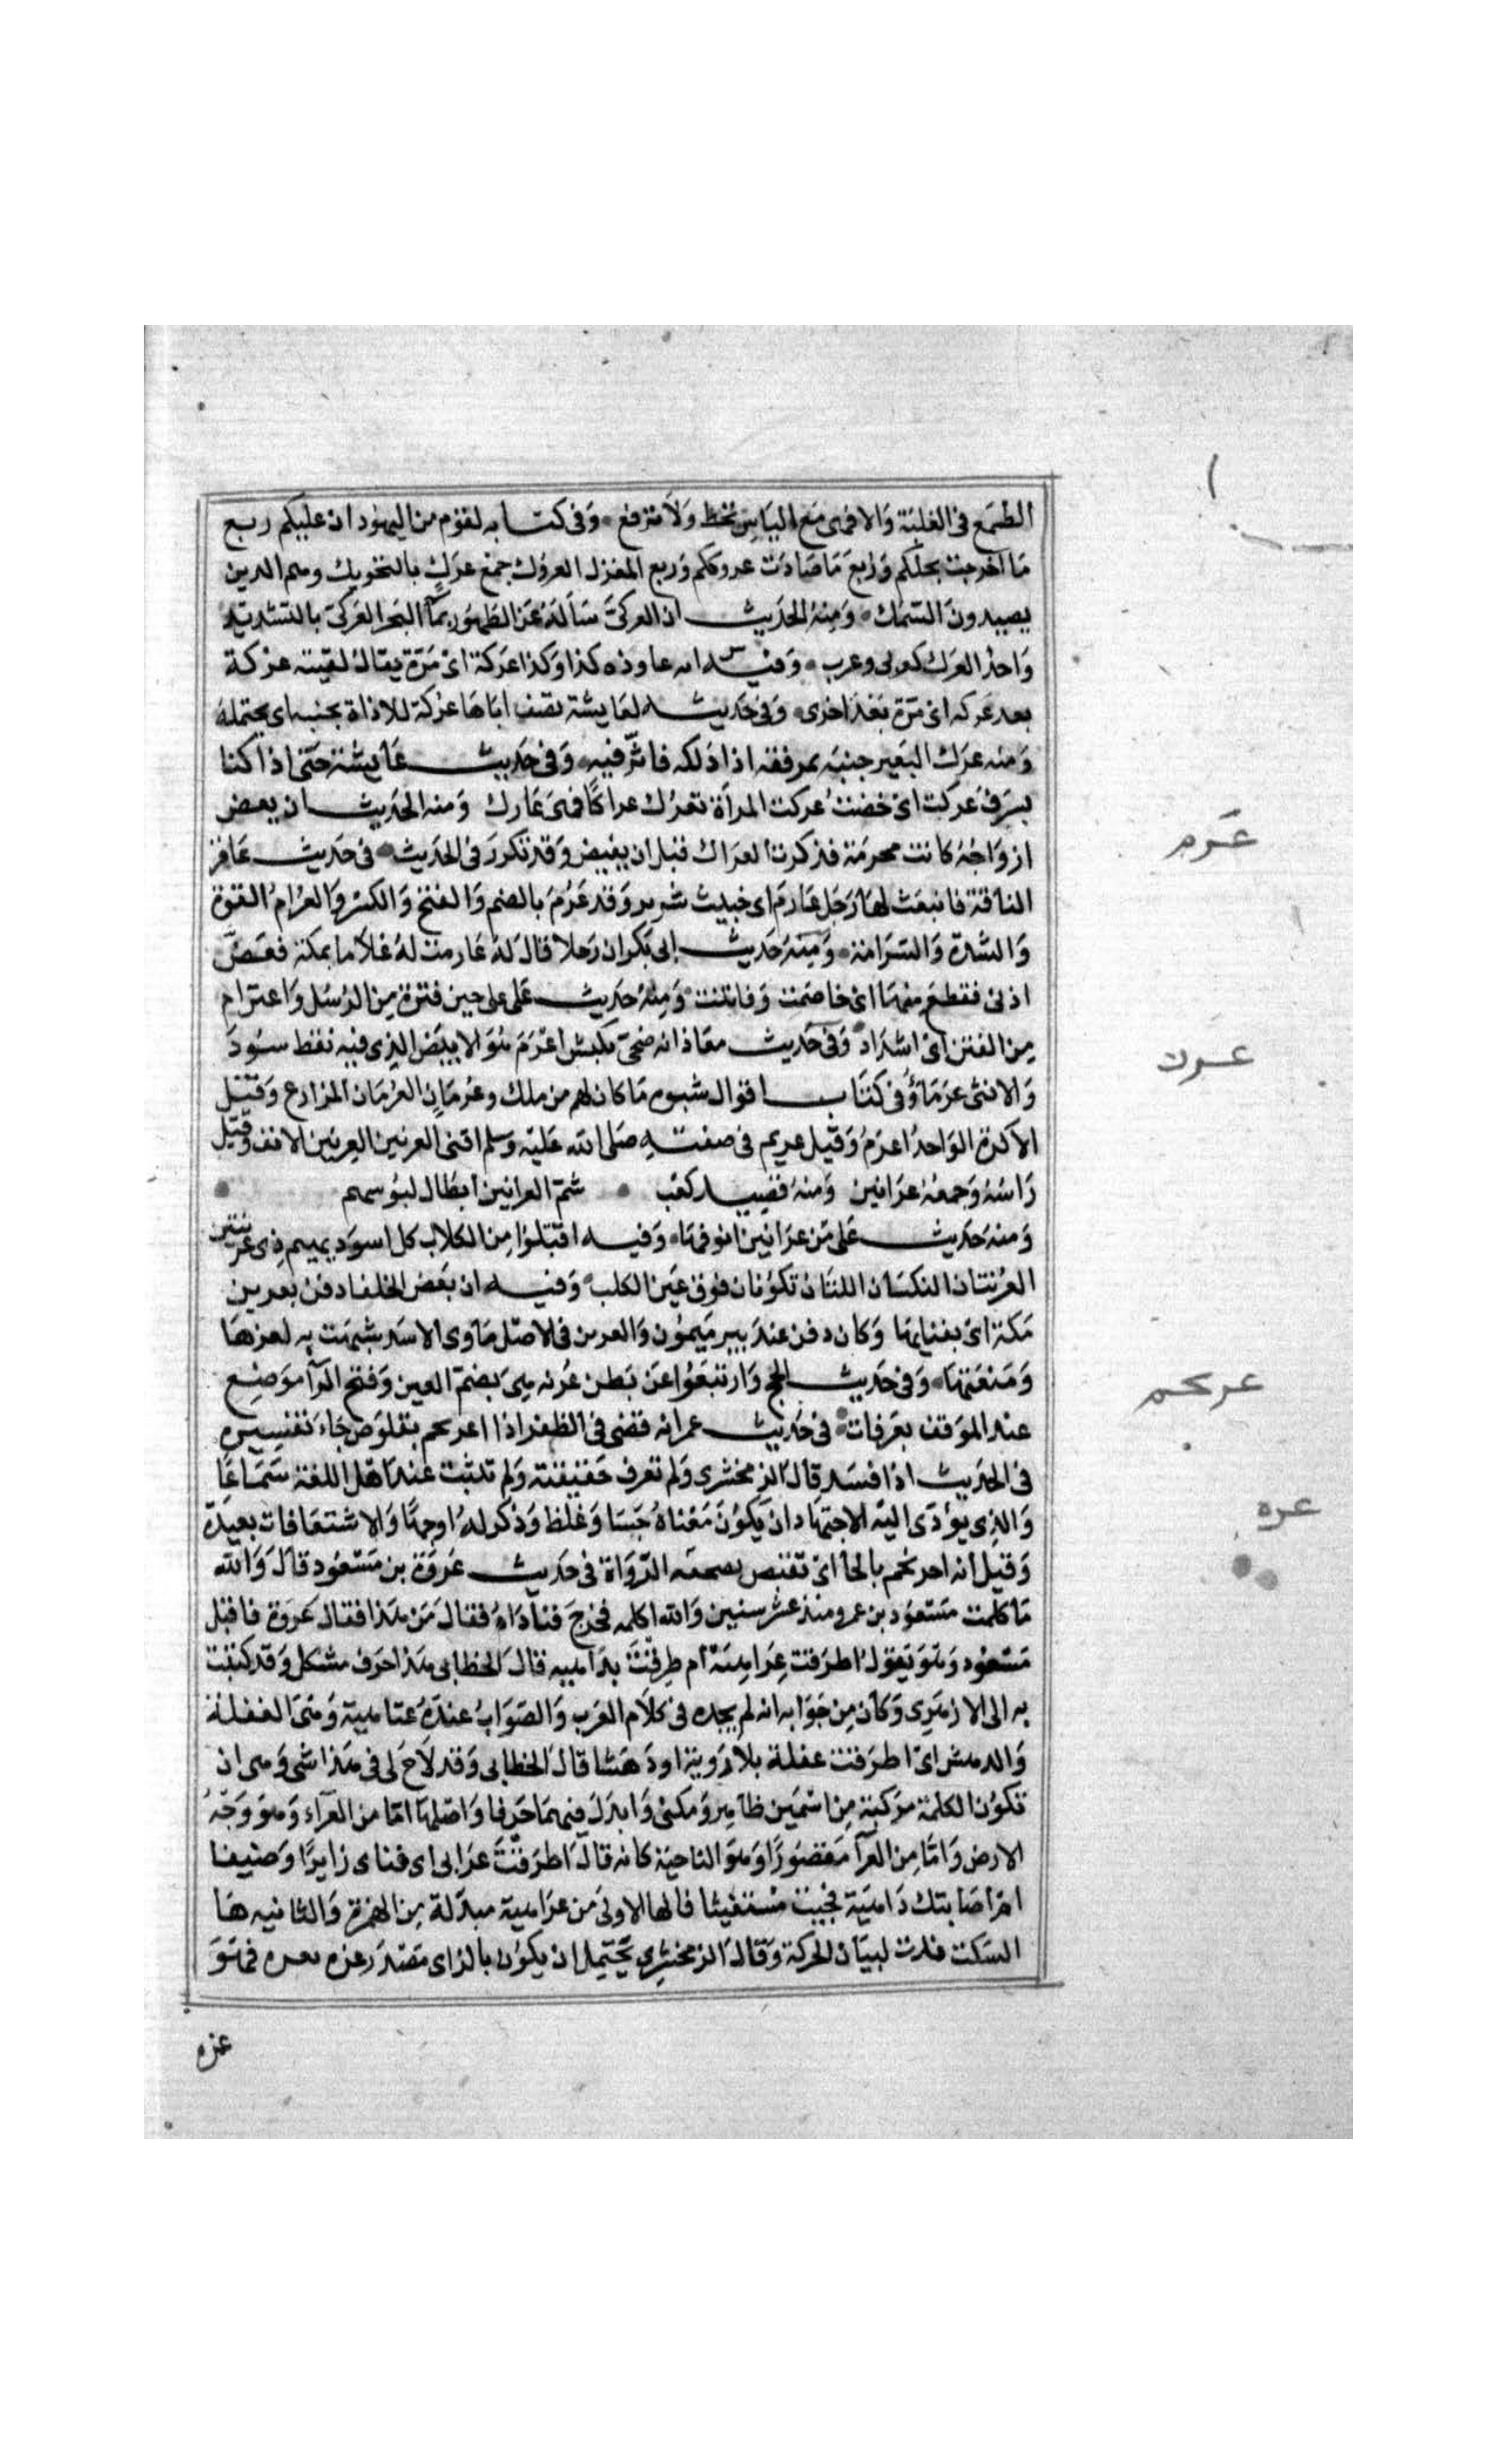 الطمع في الغلبة والافهى مع الياس تخط ولا ترفع وفي كتابه لقوم من اليهود ان عليكم ربع
ما اخرجت نخلكم وربع ما صادت عروككم وربع المغزل العروك جمع عرك بالتحريك وهم الذين
يصيدون السمك ومنه الحديث ان العركي سأله عن الطهور بمآ البحر العركي بالتشديد
واحد العرك كعربى وعرب وفيه انه عاوذه كذا وكذا عركة اى مرة يقال لقيته عركة
بعد عركه اى مرة بعد اخرى وفي حديث لعايشة تصف اباها عركة للاذاة بجنبه اى يحتمله
ومنه عرك البعير جنبه بمرفقه اذا دلكه فاثر فيه وفي حديث عايشة حتى اذا كنا
بسرف عركت اى حضت عركت المرأة تعرك عراكا فهى عارك ومنه الحديث ان بعض
ازواجه كانت محرمة فذكرت العراك قبل ان يفيض وقد تكرر في الحديث في حديث عاقر
الناقة فانبعث لها رجل عارم اى خبيث شرير وقد عرم بالضم والفتح والكسر والعرام القوة
والشدة والشراسة ومنه حديث ابى بكر ان رجلا قال له عارمت له غلاما بمكة فعض
اذنى فقطع منها اى خاصمت وفاتنت ومنه حديث على على حين فترة من الرسل واعترام
من الفتن اى اشتداد وفي حديث معاذ انه ضحى بكبش اعرم هو الابيض الذى فيه نقط سود
والانثى عرماؤ في كتاب اقوال شبوه ما كان لهم من ملك وعرمان العرمان المزارع وقيل
الاكرة الواحد اعرم وقيل عريم في صفته صلى الله عليه وسلم اقنى العرنين العرنين الانف وقيل
راسه وجمعه عرانين ومنه قصيد كعب شم العرانين ابطال لبوسهم
ومنه حديث على من عرانين انوفها وفيه اقتلوا من الكلاب كل اسود بهيم ذى عرنتين
العرنتان النكتان اللتان تكونان فوق عين الكلب وفيه ان بعض الخلفا دفن بعرين
مكة اى بفنايها وكان دفن عند بير ميمون والعرين في الاصل ماوى الاسد شبهت به لعزها
ومنعتها وفي حديث الحج وارتفعوا عن بطن عرنه هى بضم العين وفتح الرآ موضع
عند الموقف بعرفات في حديث عمر انه قضى في الظفر اذا اعرنجم بقلوص جاء تفسيره
في الحديث اذا فسد قال الزمخشرى ولم نعرف حقيقته ولم تثبت عند اهل اللغة سماعا
والذى يؤدى اليه الاجتهاد ان يكون معناه جسا وغلظ وذكر له اوجها والاشتقاقات بعيدة
وقيل انه احرنجم بالحا اى تقبض صحفه الرواة في حديث عروة بن مسعود قال والله
ما كلمت مسعود بن عمرو منذ عشر سنين والله اكلمه فخرج فناداه فقال من هذا فقال عروة فاقبل
مسعود وهو يقول اطرقت عراهيه ام طرقت بداهيه قال الخطابى هذا حرف مشكل وقد كتبت
به الى الازهرى وكان من جوابه انه لم يجده في كلام العرب والصواب عنده عتاهية وهى الغفلة
والدهش اى اطرقت غفلة بلا روية او دهشا قال الخطابى وقد لاح لى في هذا شى وهى ان
تكون الكلمة مركبة من اسمين ظاهر ومكنى وابدل فيهما حرفا واصلها اما من العرآء وهو وجه
الارض واما من العرآ مقصورا وهو الناحية كانه قال اطرقت عرابى اى فناى زايرا وضيفا
ام اصابتك داهية فجيت مستغيثا فالها الاولى من عراهية مبدلة من الهمزة والثانيه ها
السكت زيدت لبيان الحركة وقال الزمخشرى يحتمل ان يكون بالزاى مصدر عزه يعزه فهو
عزه
عرم
عرن
عرنجم
عره